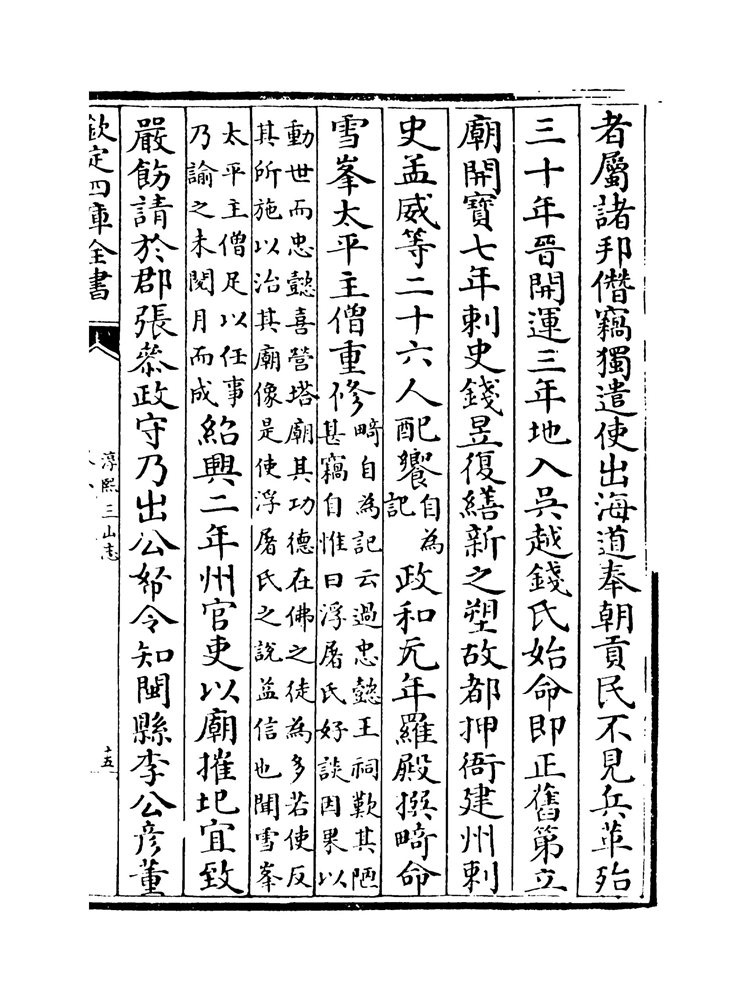 者屬諸邦僭竊獨遣使出海道奉朝貢民不見兵革殆
三十年晉開運三年地入吳越錢氏始命即正舊第立
廟開寶七年刺史錢昱復繕新之塑故都押衙建州刺
史孟威等二十六人配饗自為記政和元年羅殿撰畸命
雪峯太平主僧重修畸自為記云過忠懿王祠歎其陋甚竊自惟曰浮屠氏好談因果以
動世而忠懿喜營塔廟其功德在佛之徒為多若使反其所施以治其廟像是使浮屠氏之說益信也聞雪峯
太平主僧足以任事乃諭之未閱月而成紹興二年州官吏以廟摧圮宜致
嚴飭請於郡張叅政守乃出公帑令知閩縣李公彥董
欽定四庫全書
淳熙三山志
十五